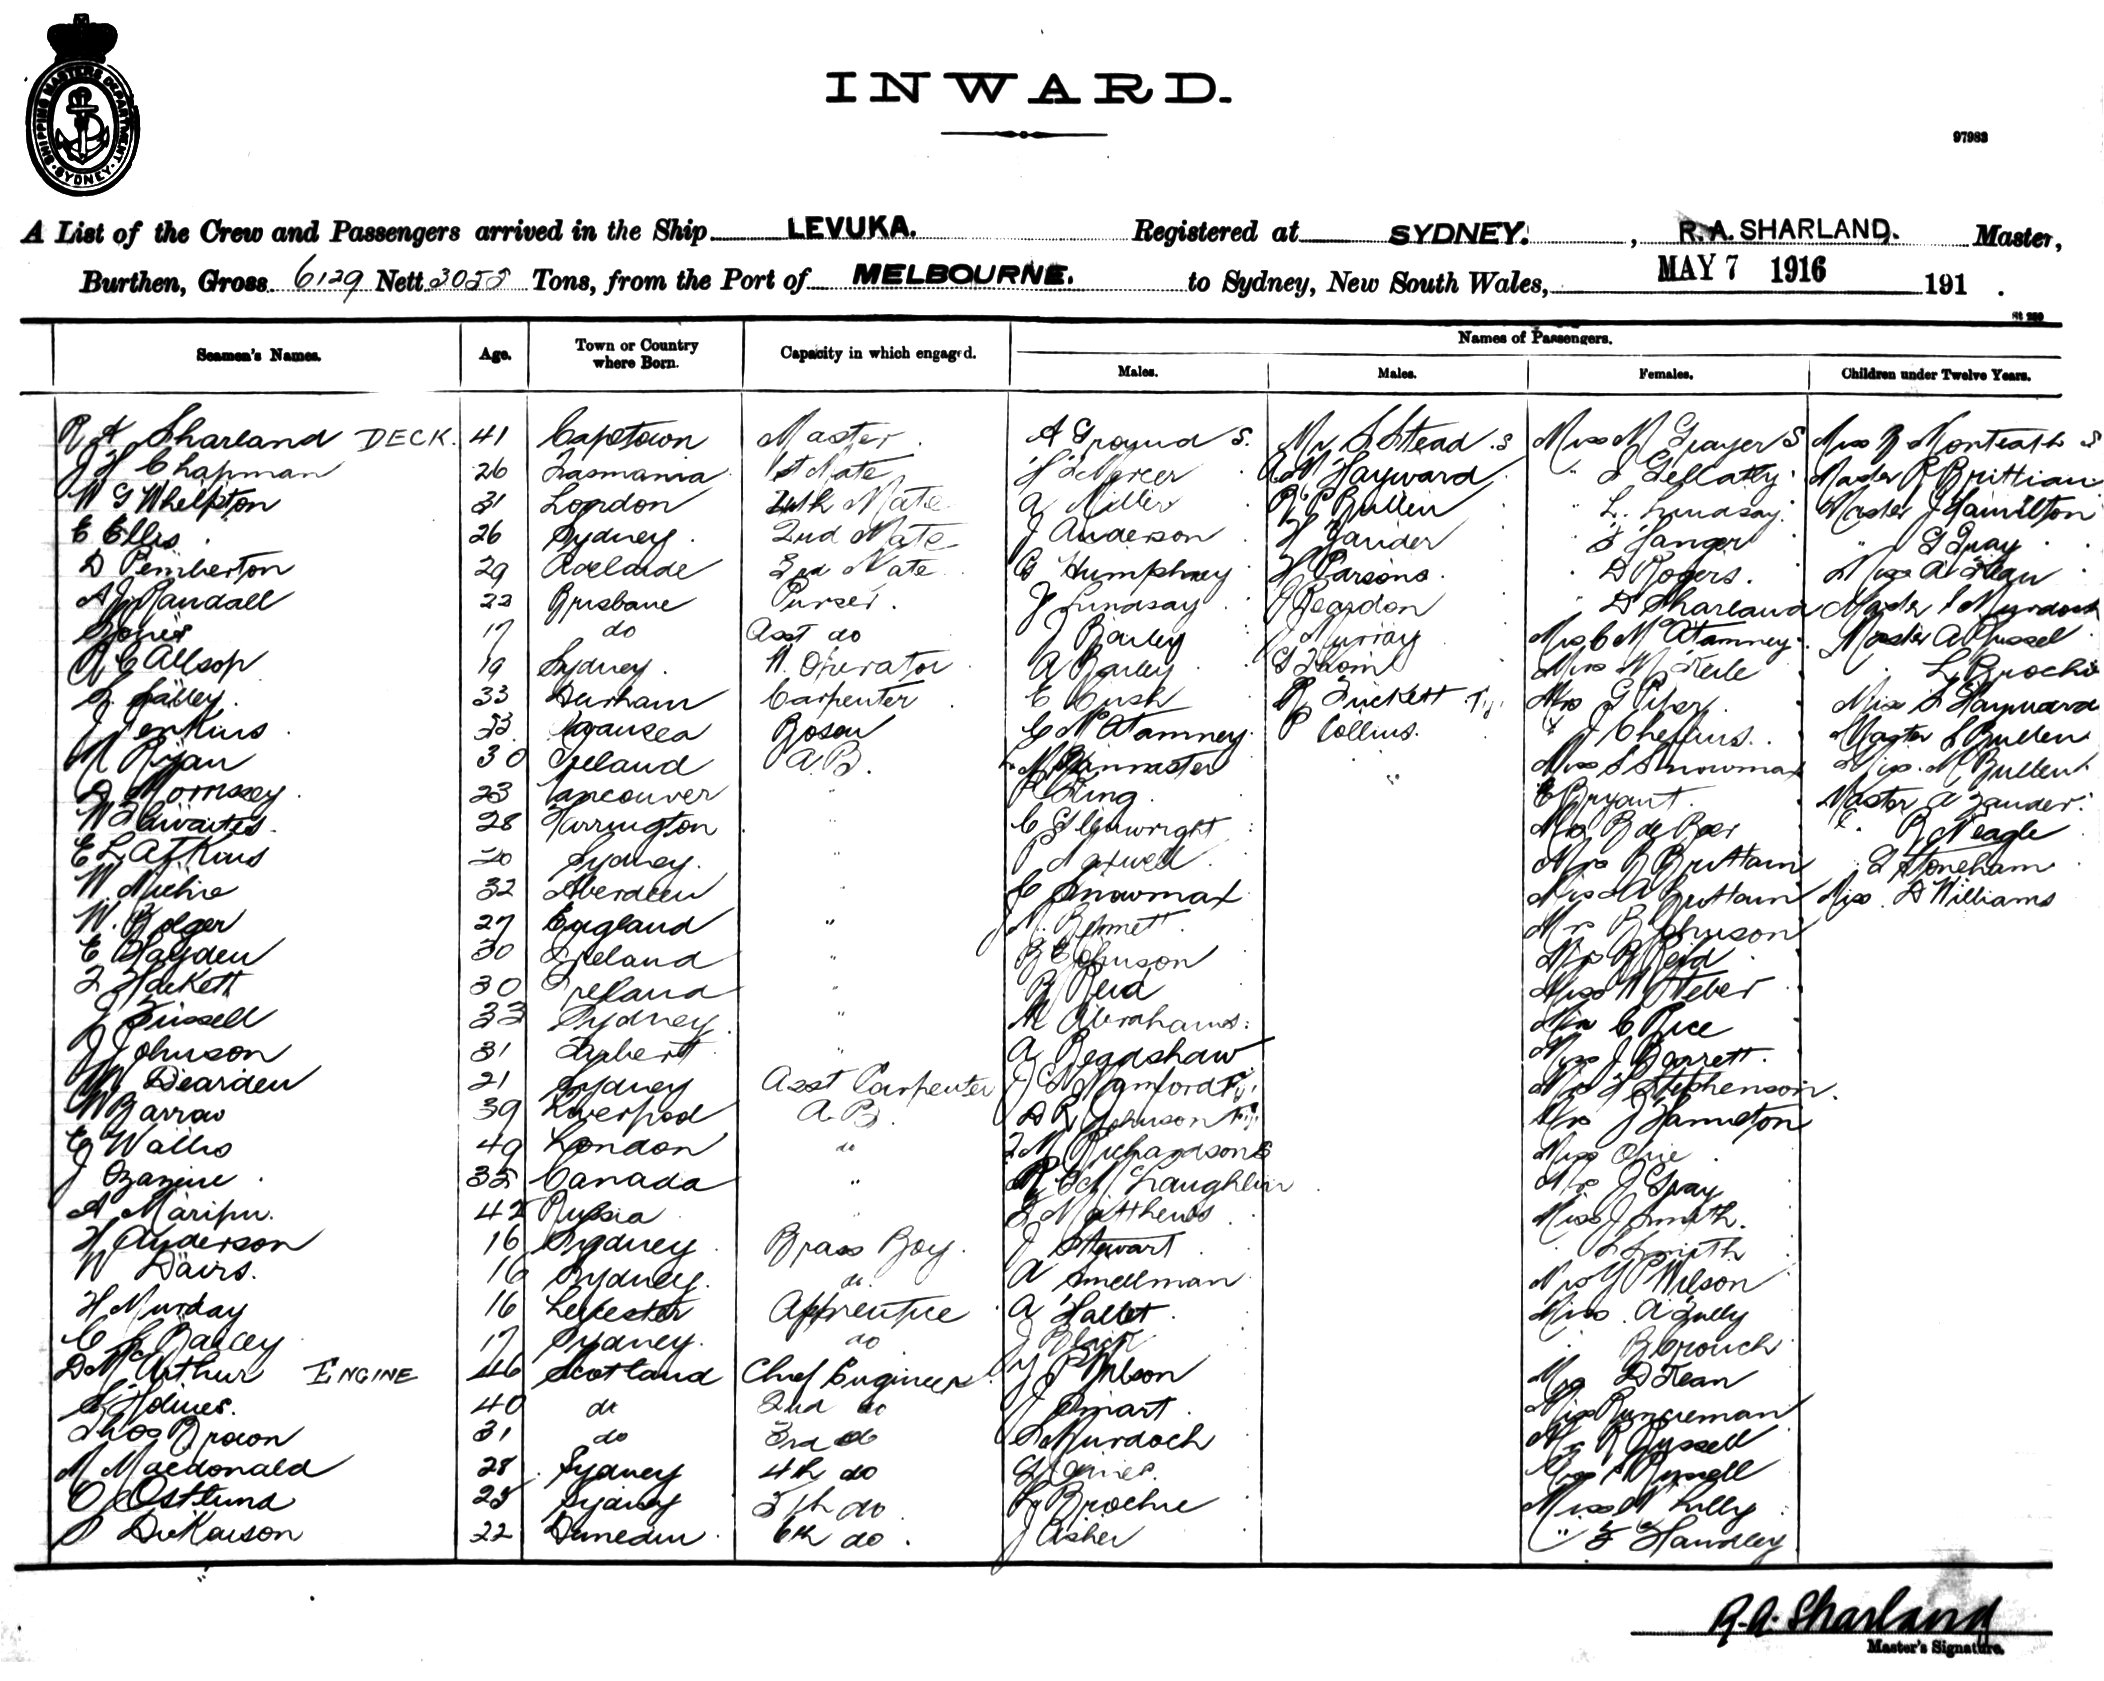 SHIPPING MASTERS DEPARTMENT. SYDNEY.
INWARD.
97983
A List of the Crew and Passengers arrived in the Ship LEVUKA. Registered at SYDNEY. , R.A. SHARLAND. Master,
Burthen, Gross 6129 Nett 3055 Tons, from the Port of MELBOURNE. to Sydney, New South Wales, MAY 7 1916 191 .
St 250
Names of Passengers.
Seamen's Names. Age. Town or Country where Born. Capacity in which engaged. Males. Males. Females. Children under Twelve Years.
R A Sharland DECK. 41 Capetown Master. A S. Mr S Stead S Miss M Grayer S Miss B Monteath S
J H Chapman 26 Tasmania 1st Mate H Mercer A M Hayward " Gellatly Master R Brittian
W G Whelpton 31 London Mate A Miller Bullen " L. Lindsay Master J Hamilton
E Ellis 26 Sydney. 2nd Mate J Anderson H Zander " Hanger " G Gray
D Pemberton 29 Adelaide 3rd Mate G Humphrey H Parsons. " D Rogers. Miss A
A J Randall 22 Brisbane Purser. J Lindsay J Reardon " D Sharland Master Murdoch
17 do Asst do J Bailey Murray Mrs C McAtamney Master A Russell
R C Allsop 19 Sydney. W. Operator A Bailey G Thom Mrs M Steile L Brochie
33 Durham Carpenter E Cush R Tuckett Fiji Mrs G Piper. Miss Hayward
J Jenkins 53 Swansea Bosun C McAtamney P Collins. " J Chellius. Master S Bullen
M Ryan 30 Ireland A.B. Miss S Snowmax Miss. M Bullen
D Morrissey. 23 Vancouver " King. E Bryant. Master A Zander
W Thwaites 28 Torrington " C Wainwright Mrs B de Boer R Neagle
E L Atkins 20 Sydney. " Maxwell Mrs R Brittain Stoneham
W Michie 32 Aberdeen " C Snowmax Miss A Brittain Miss. D Williams
W. Bolger 27 England " M. Bennett Mrs B Johnson
E Hayden 30 Ireland " B E Johnson Mrs B Reid
T Hackett 30 Ireland " B Reid Miss N Heber
J Russell 33 Sydney. " M Abrahams Mrs C Rice
J Johnson 31 " A Readshaw Miss J Barrett.
W Dearden 21 Sydney Asst Carpenter J Fiji Mrs Stephenson
W Barrow 39 Liverpool A.B. D R Johnson Fiji Mrs J Hamilton
E Wallis 49 London do T M Richardson S Miss Olive
J 35 Canada " R C McLaughlin Mrs J Gray
A Maripu. 42 Russia " Matthews Miss J Smith.
H Anderson 16 Sydney Brass Boy. J Stewart " Smith
W Davis. 16 Sydney. do. A Smellman Mrs Y P Wilson
H Murday 16 Leicester Apprentice A Hallet Miss A Lully
C L Bailey 17 Sydney. do J Black " B Crouch
D McArthur ENGINE 46 Scotland Chief Engineer Y P Wilson Mrs D Jean
Holmes. 40 do 2nd do J Smart. Miss Runcieman
Thos Brown 31 do 3rd do Murdoch Mrs R Russell
M Macdonald 28 Sydney 4th do Miss Russell
O Ostlund 25 Sydney 5th do L Brochie Miss M Lully
P Dickason 22 Dunedin 6th do. J Cisher " Handley
R. A. Sharland
Master's Signature.